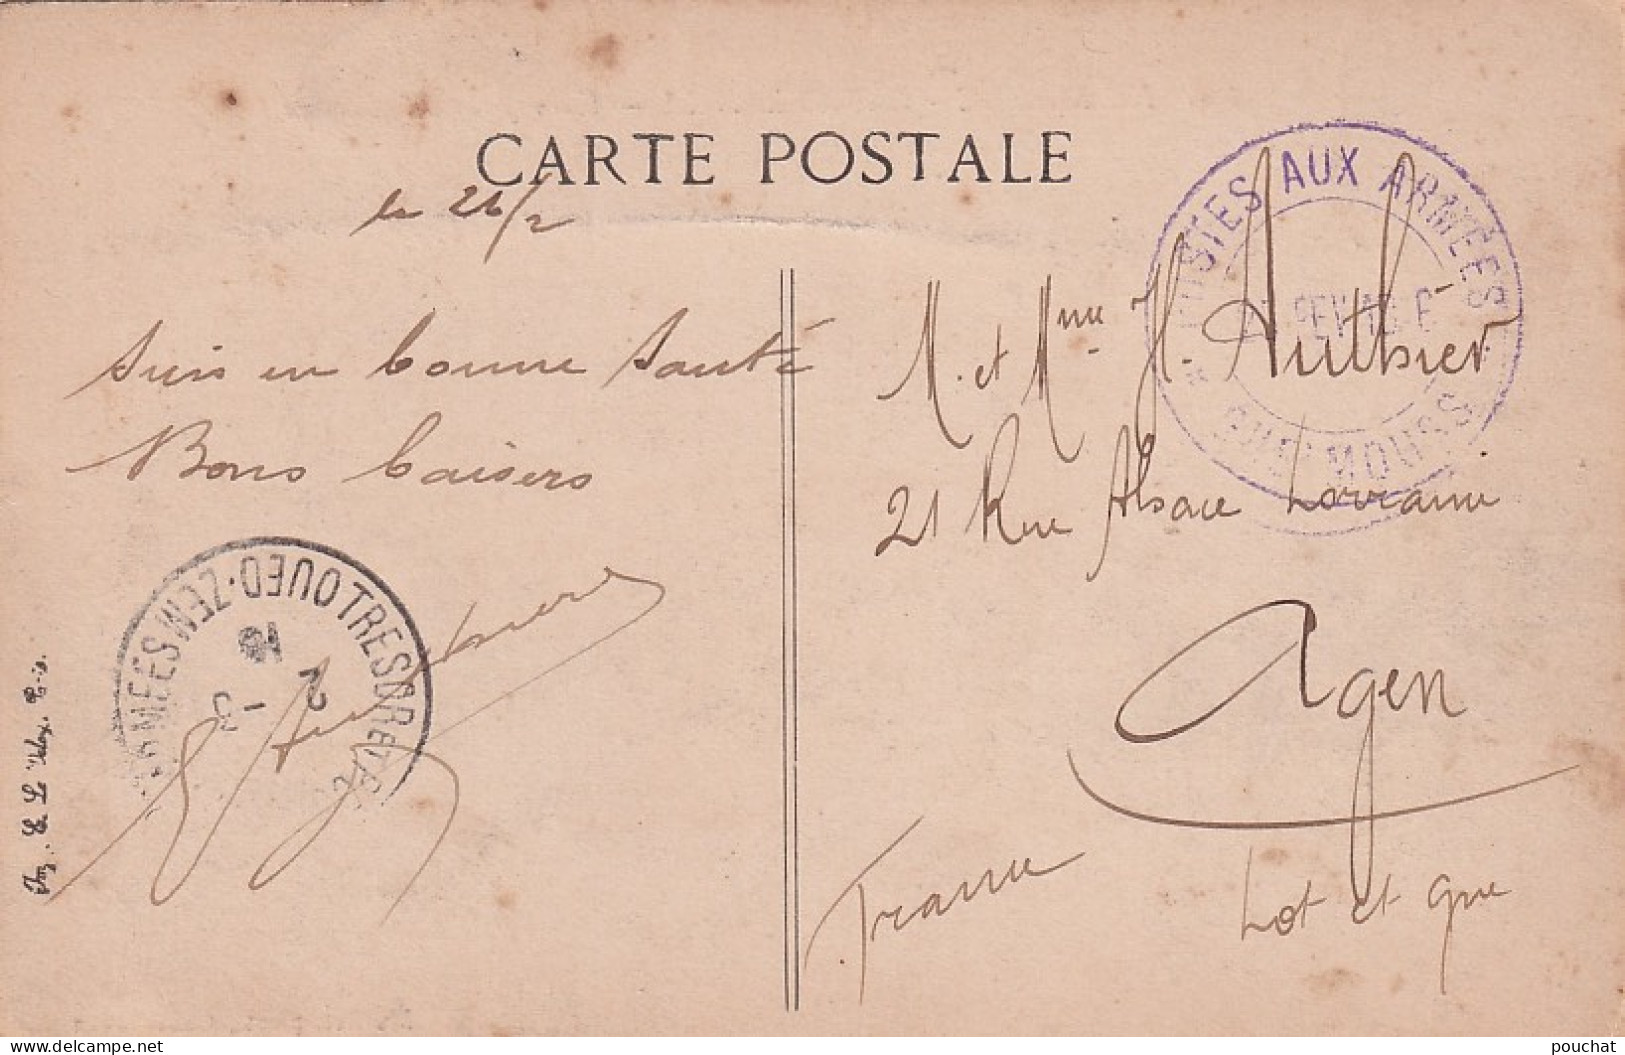 CARTE POSTALE
le 26/2
Suis en bonne santé
Bons baisers
M. et Mme H. Authier
21 Rue Alsace Lorraine
Agen
Lot et Gne
France
POSTES AUX ARMÉES
FEV
TRESOR ET
ARMEES
OUED-ZEM
2 -3
16
Imp. E. Le Deley. Paris.
delcampe.net
pouchat